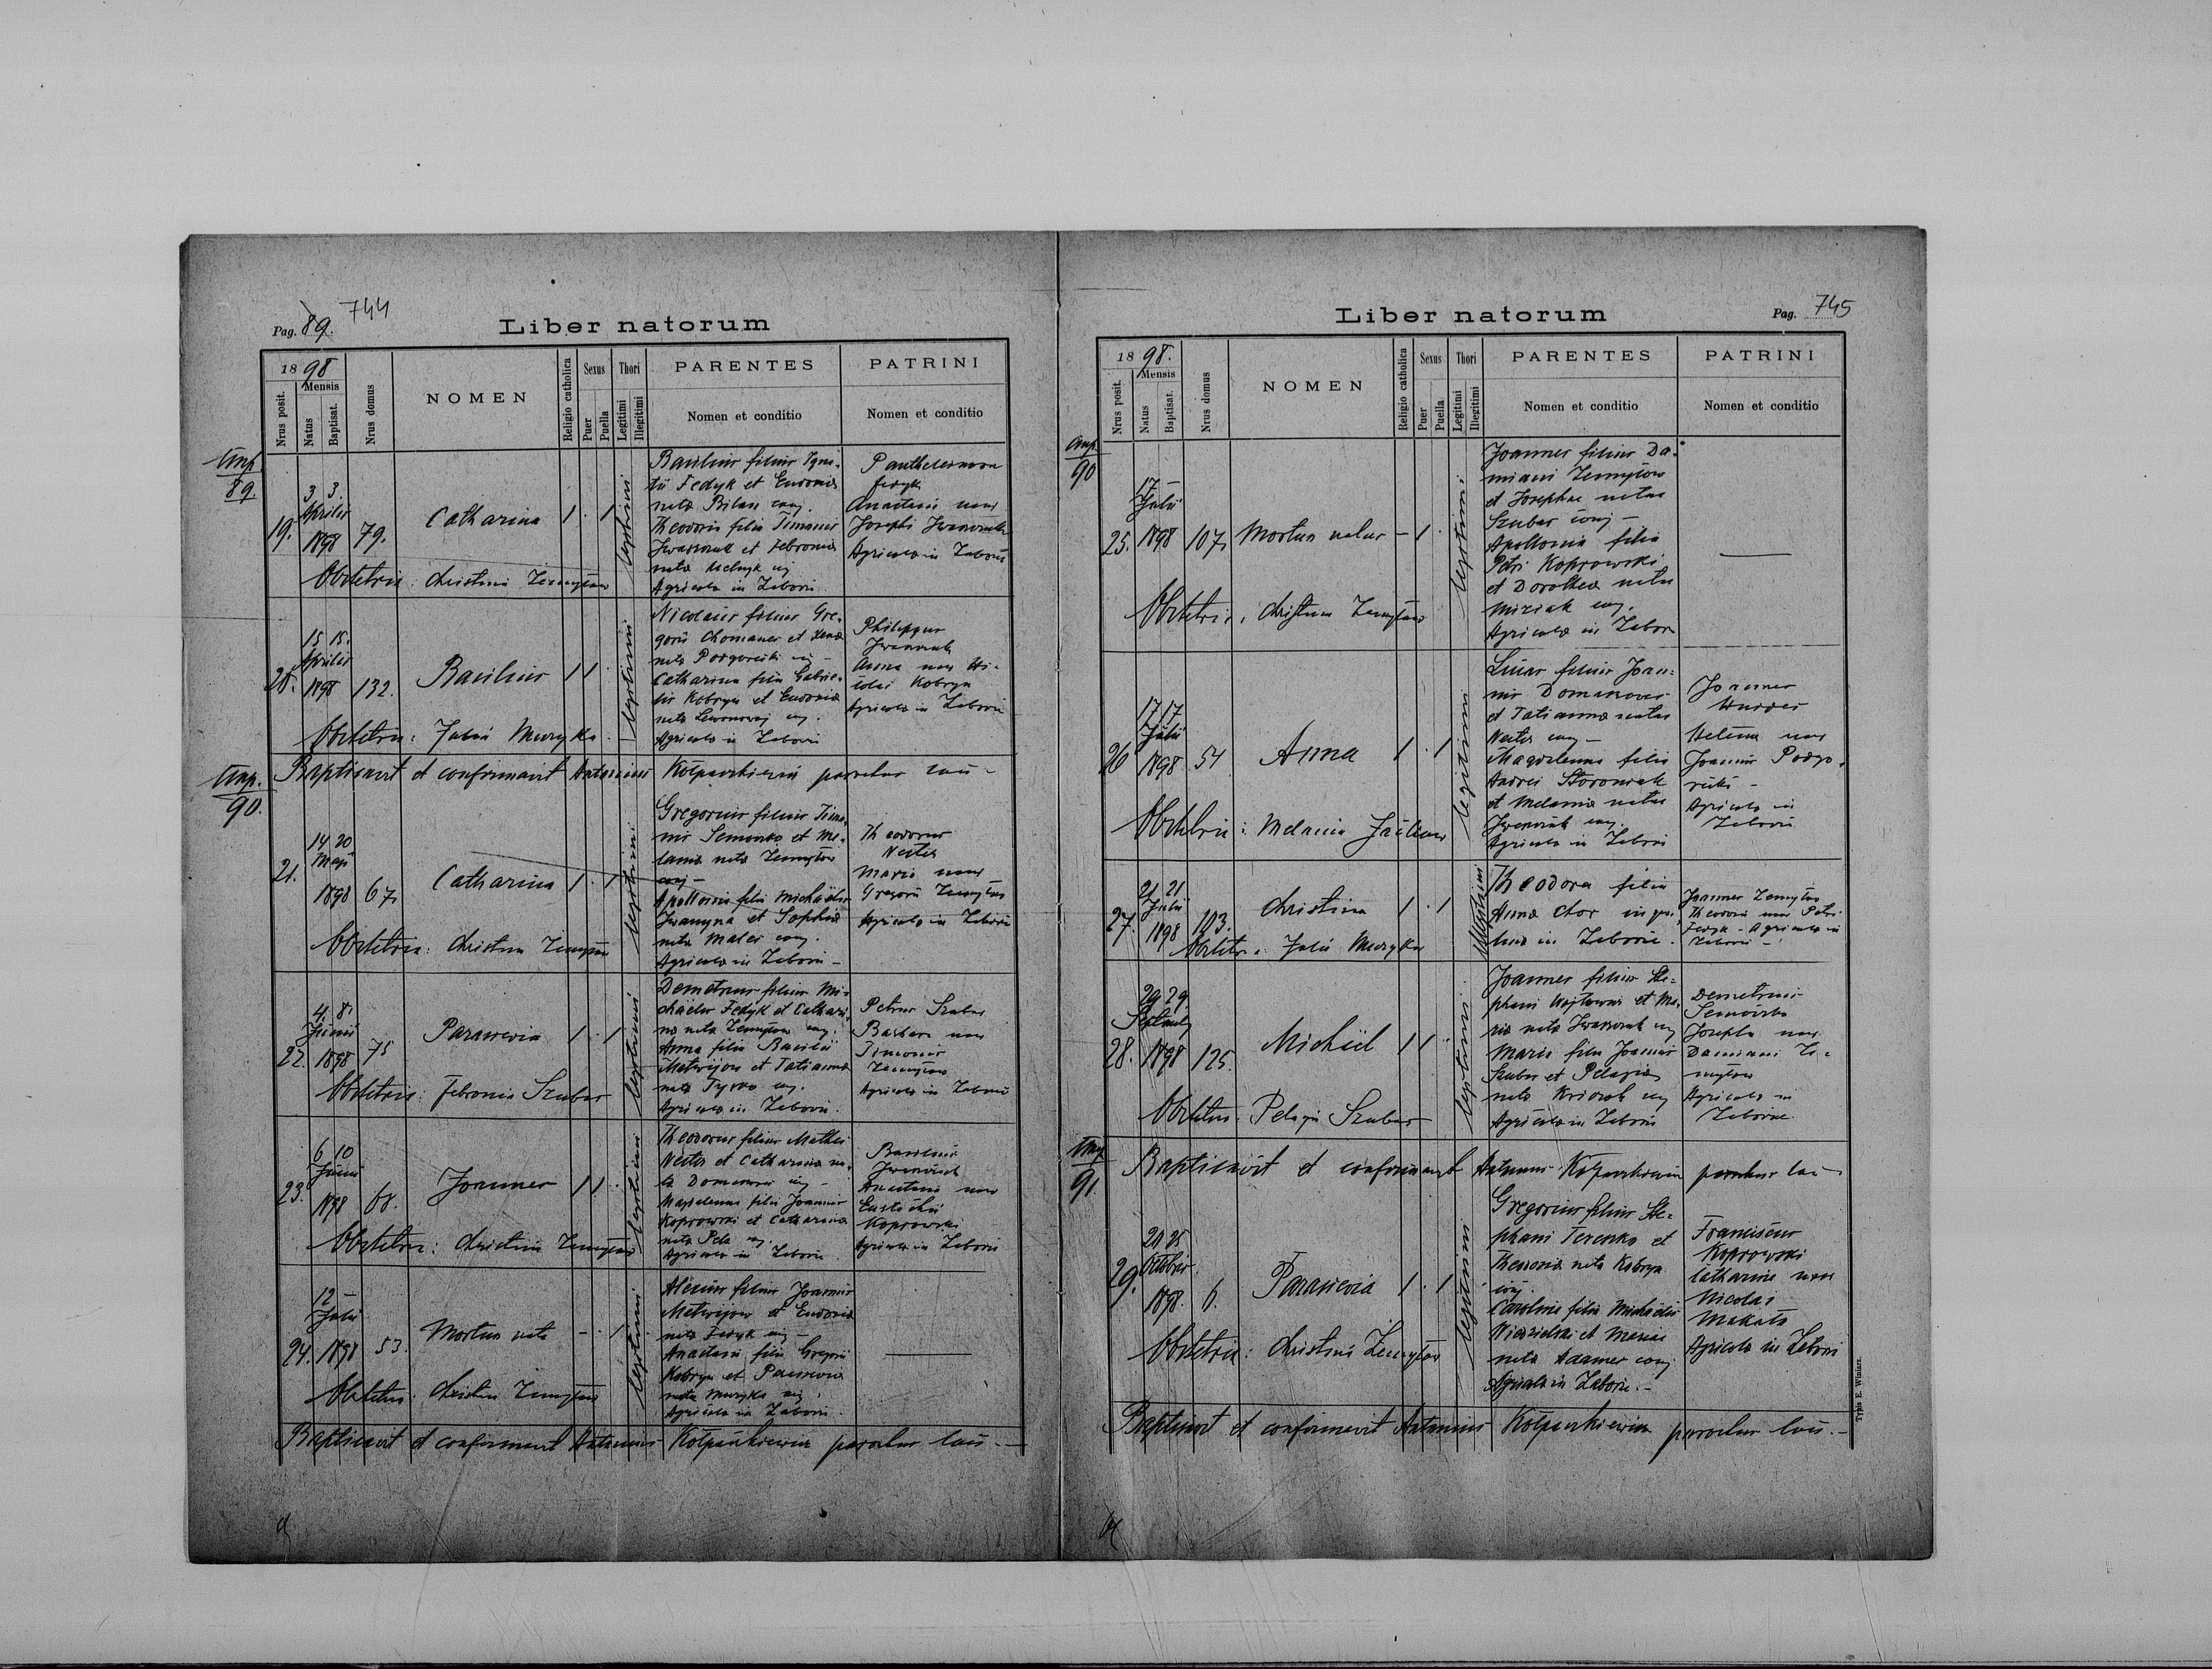 744
Pag. 89.
Liber natorum
1898
Mensis
Nrus posit.
Natus
Baptisat.
Nrus domus
NOMEN
Religio catholica
Sexus
Puer
Puella
Thori
Legitimi
Illegitimi
PARENTES
Nomen et conditio
PATRINI
Nomen et conditio
89.
19.
3. 3.
Aprilis
1898
79.
Catharina
1 . 1
legitimi
Basilius filius Igna-
tii Fedyk et Eudoxia
nata Bilan conj.
Theodora filia Timonis
Iwaszczuk et Febronia
nata Melnyk
Agricola in Zeborii
Panthelemon
Fedyk
Anastasia uxor
Josephi
Agricola in Zeborii
Obstetrix: Christina Zemyton
15 15.
Aprilis
1898
132.
Basilius
1 1
legitimi
Nicolaus filius Gre-
gorii Chomaner et
nata Podgorecki
Catharina filia Gabrie-
lis Kobryn et Eudoxia
nata
Agricola in Zeborii
Philippus
Anna uxor Ni-
colai Kobryn
Agricola in Zeborii
Obstetrix: Julia Muzyka
Baptisavit et confirmavit Antonius Kolpaczkiewicz parochus loci -
90.
21.
14 20
Maji
1898
67
Catharina
1 . 1
legitimi
Gregorius filius Timo-
nis Semenko et Me-
lania nata Zemyton
conj -
Apollonia filia Michaelis
Iwanyna et Sophia
nata Malec conj.
Agricola in Zeborii -
Theodorus
Nester
Maria uxor
Gregorii Zemyton
Agricola in Zeborii
Obstetrix: Christina Zemyton
22.
4. 8.
Junii
1898
75
Parascevia
1 . 1
legitimi
Demetrius filius Mi-
chaelis Fedyk et Cathari-
na nata Zemyton conj.
Anna filia Basilii
Matwijow et Tatianna
nata Tysko conj.
Agricola in Zeborii.
Petrus Szubar
Barbara uxor
Timonis
Zemyton
Agricola in Zeborii
Obstetrix: Febronia Szubar
23.
6 10
Junii
1898
68.
Joannes
1 1
legitimi
Theodorus filius Mathei
Nester et Catharina na-
ta
Magdalena filia Joannis
Koprowski et Catharina
nata Pela
Agricola in Zeborii
Basilius
Anastasia uxor
Eustachii
Koprowski
Agricola in Zeborii
Obstetrix: Christina Zemyton
24.
12 -
Julii
1898
53.
Mortua nata
- . 1
legitimi
Alexius filius Joannis
Matwijow et Eudoxia
nata Fedyk
Anastasia filia Gregorii
Kobryn et Parascevia
nata Muzyka
Agricola in Zeborii.
Obstetrix: Christina Zemyton
Baptisavit et confirmavit Antonius Kolpaczkiewicz parochus loci. -
Liber natorum
Pag. 745
1898.
Mensis
Nrus posit.
Natus
Baptisat.
Nrus domus
NOMEN
Religio catholica
Sexus
Puer
Puella
Thori
Legitimi
Illegitimi
PARENTES
Nomen et conditio
PATRINI
Nomen et conditio
90
25.
17 -
Julii
1898
107
Mortus natus
- 1 .
legitimi
Joannes filius Da-
miani Zemyton
et Josephae natae
Szubar conj -
Apollonia filia
Petri Koprowski
et Dorothea nata
conj.
Agricola in Zeborii
Obstetrix: Christina Zemyton
26
17 17
Julii
1898
54
Anna
1 . 1
legitimi
Lucas filius Joan-
nis
et Tatianna nata
Nester conj -
Magdalena filia
Andrei Storoniak
et Melania nata
conj.
Agricola in Zeborii
Joannes
Helena uxor
Joannis Podgo-
recki -
Agricola in
Zeborii
Obstetrix: Melania
27.
21 21
Julii
1898
103.
Christina
1 . 1
Illegitimi
Theodora filia
Anna Chor
in Zeborii.
Joannes Zemyton
Theodora uxor Petri
Fedyk - Agricola in
Zeborii -
Obstetrix: Julia Muzyka
28.
29 29
1898
125.
Michael
1 1 .
legitimi
Joannes filius Ste-
phani et Ma-
ria nata
Maria filia Joannis
Szubar et Pelagia
nata
Agricola in Zeborii
Demetrius
Josepha uxor
Damiani Ze-
myton
Agricola in
Zeborii.
Obstetrix: Pelagia Szubar
91.
Baptisavit et confirmavit Antonius Kolpaczkiewicz parochus loci -
29.
Octobris
1898.
6.
Parascevia
1 . 1
legitimi
Gregorius filius Ste-
phani Terenko et
nata Kobryn
conj.
Carolina filia Michaelis
et Maria
nata Adamer conj
Agricola in Zeborii. -
Franciscus
Koprowski
Catharina uxor
Nicolai
Agricola in Zeborii
Obstetrix: Christina Zemyton
Baptisavit et confirmavit Antonius Kolpaczkiewicz parochus loci. -
Typis E. Winiarz.